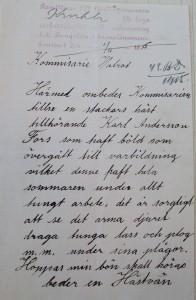 Kommisarie Hebrot
Härmed ombedes Kommisarien
tillse en stackars häst
tillhörande Karl Andersson
Fors som haft böld som
övergått till varbildning
vilket denne haft hela
sommaren under allt
tungt arbete, det är sorgligt
att se det arma djuret
draga tunga lass och plog
m.m. under sina plågor.
Hoppas min bön skall höras
beder en Hästvän